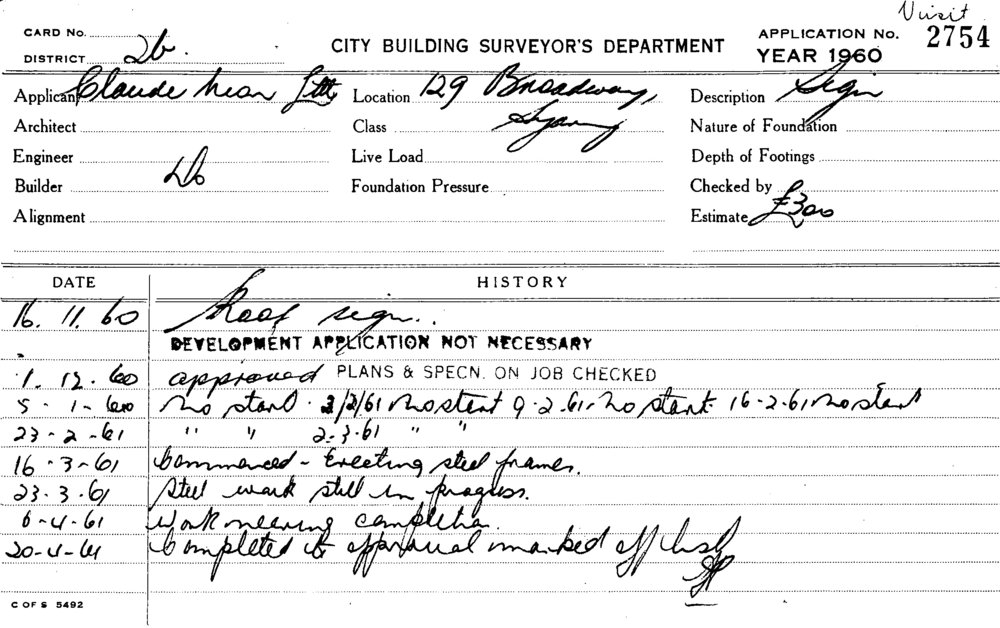 Visit
CARD No.
DISTRICT 2b.
CITY BUILDING SURVEYOR'S DEPARTMENT
APPLICATION No. 2754
YEAR 1960
Applicant Claude Neon Ltd
Location 129 Broadway,
Description Sign
Architect
Class
Nature of Foundation
Engineer
Live Load
Depth of Footings
Builder Do
Foundation Pressure
Checked by
Alignment
Estimate £300
DATE HISTORY
16. 11. 60 Roof sign.
DEVELOPMENT APPLICATION NOT NECESSARY
1. 12. 60 approved PLANS & SPECN. ON JOB CHECKED
5-1-60 No start. 2/2/61 No start 9-2-61-No start 16-2-61 no start
23-2-61 " " 2-3-61 " "
16-3-61 Commenced - Erecting steel frames.
23-3-61 Steel work still in progress.
6-4-61 Work nearing completion.
20-4-61 Completed to approval marked off list
C OF S 5492